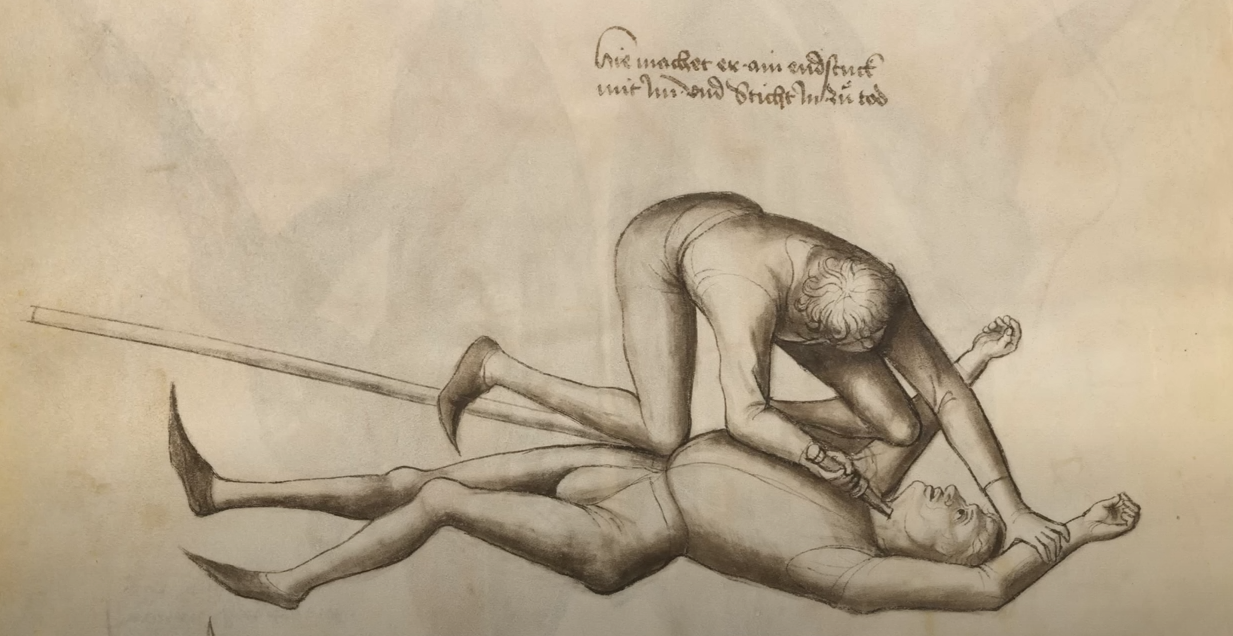 hie machet er ain endstuck
mit Im vnd Sticht In zů tod